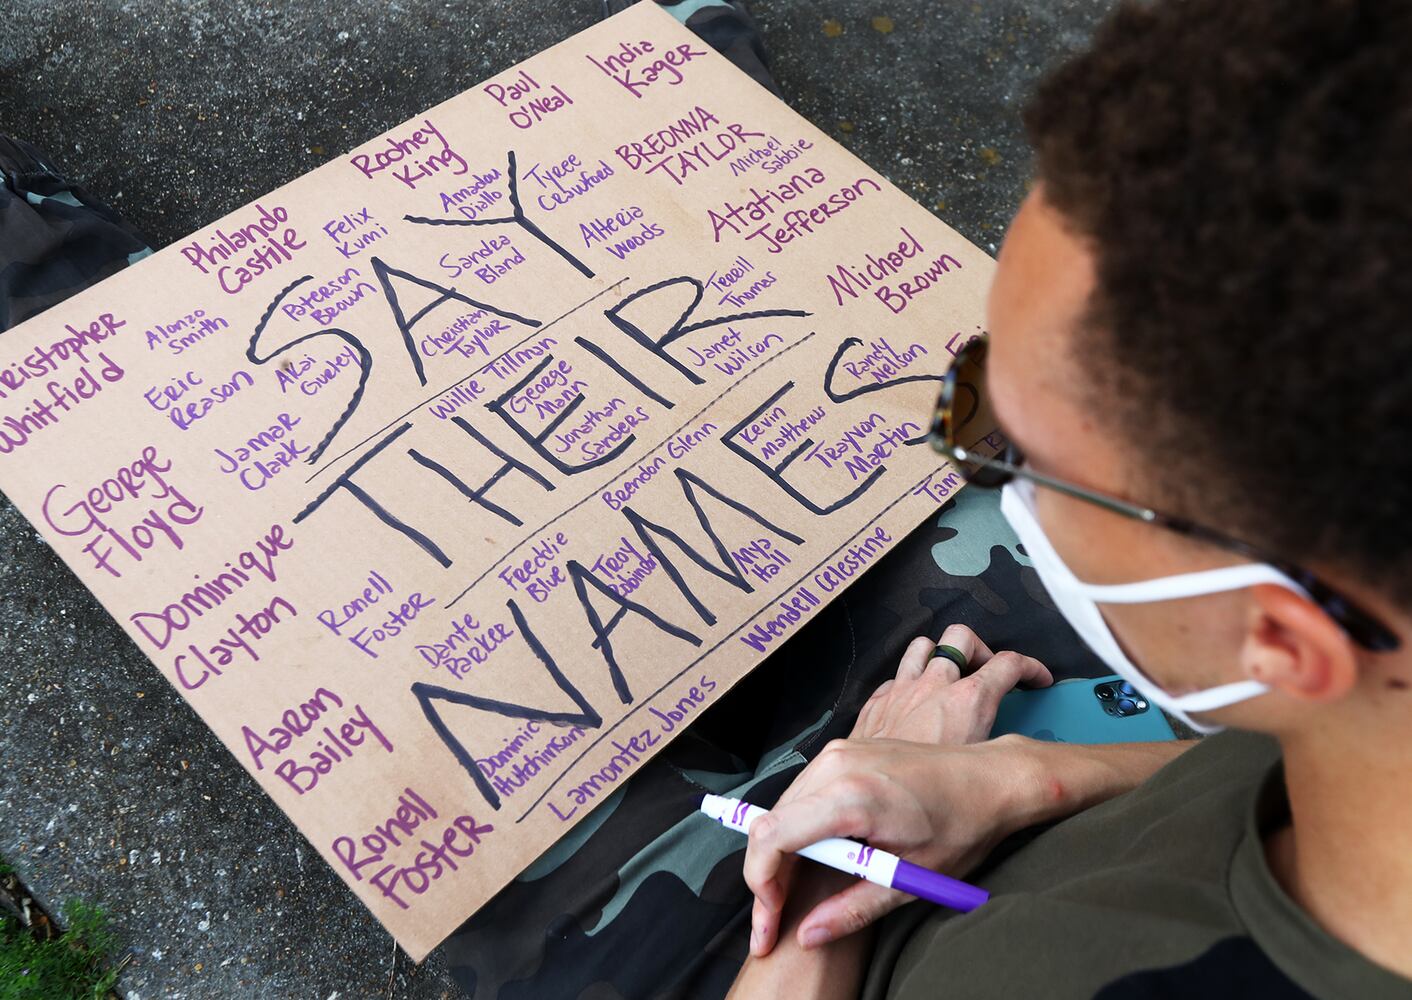 India
Kager
Paul
O'Neal
Rodney
King
BREONNA
TAYLOR
Michael
Sabbie
Tyree
Crawford
Amadou
Diallo
Philando
Castile
Felix
Kumi
Atatiana
Jefferson
Alteria
Woods
Sandra
Bland
Paterson
Brown
Alonzo
Smith
Whitfield
Michael
Brown
Terrill
Thomas
SAY
Christian
Taylor
Eric
Reason
Gurley
Jamar
Clark
Willie Tillman
George
Mann
THEIR
Janet
Wilson
Randy
Nelson
Jonathan
Sanders
George
Floyd
Brendon Glenn
Kevin
Matthews
Trayvon
Martin
NAMES
Dominique
Clayton
Ronell
Foster
Freddie
Blue
Troy
Robinson
Anya
Hall
Dante
Parker
Wendell Celestine
Aaron
Bailey
Dominic
Hutchinson
Lamontez Jones
Ronell
Foster